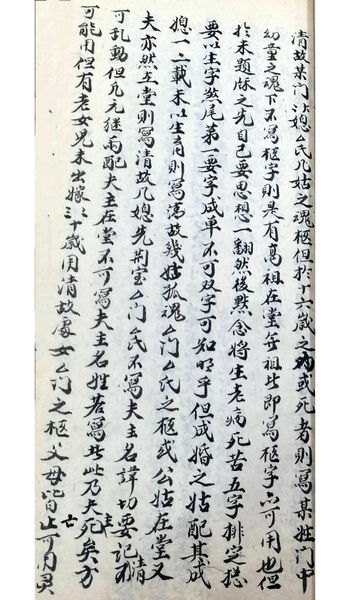 清故某门幼媳厶氏几姑之魂柩但於十六歲之内或死者則寫某姓門中
幼童之魂下不寫柩字則是有髙祖在堂無祖此即寫柩字亦可用也但
於未題牀之先自己要思想一翻然後黙念將生老病死苦五字排定揔
要以生字煞尾第一要字成单不可双字可知明乎但成婚之姑配其成
媳一二載未以生育則寫清故幾姑孤魂厶门厶氏之柩或公姑在堂又
夫亦然左堂則寫清故几媳先荆室厶门厶氏不寫夫主名諱切要記清不
可乱動但凡元继两配夫主在堂不可寫夫主名姓若寫此乃夫主死矣方
可能用但有老女兒未出嫁二三十歲用清故處女厶门之柩父母皆亡可用